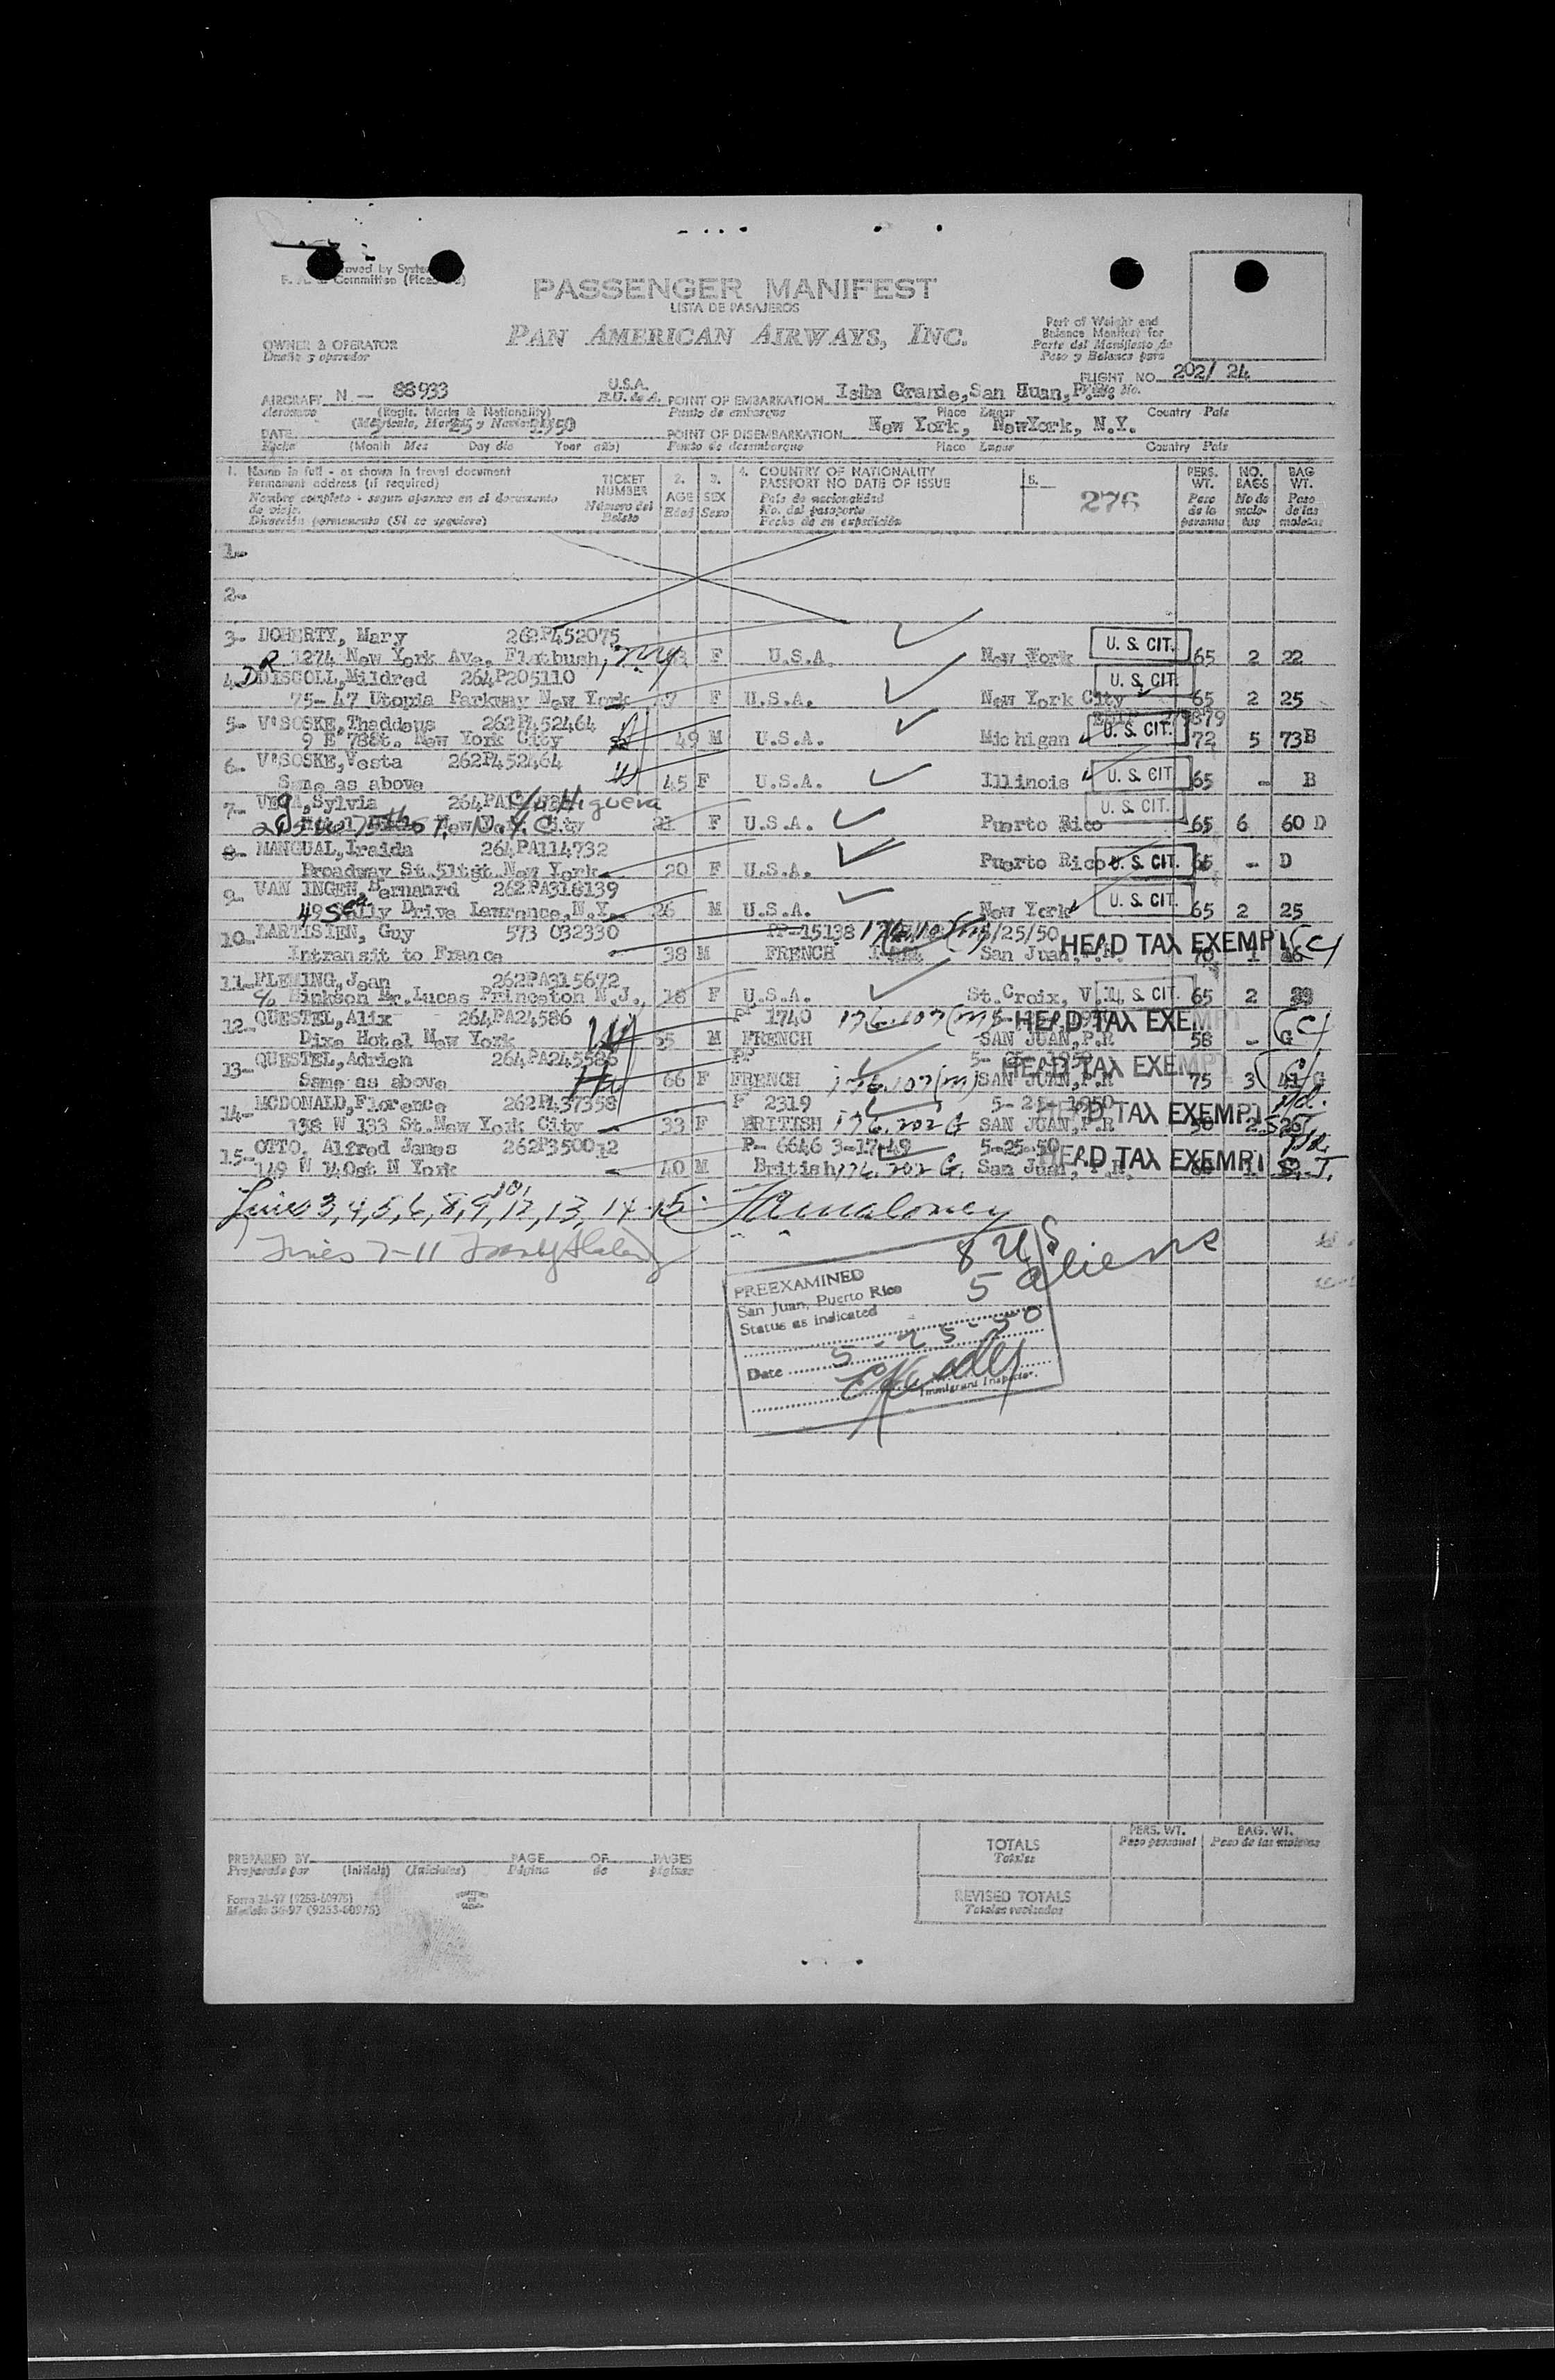 PASSENGER MANIFEST
LISTA DE PASAJEROS
PAN AMERICAN AIRWAYS, INC.
OWNER & OPERATOR
Dueño y operador
Part of Weight and
Balance Manifest for
Parte del Manifiesto de
Peso y Balance para
FLIGHT NO. 202/ 24
AIRCRAFT N - 88933 U.S.A. E.U. de A.
POINT OF EMBARKATION Isla Grande, San Huan, P.R.
Aeronave (Regis. Marks & Nationality) Punto de embarque Place Lugar Country País
DATE 25 1950
POINT OF DISEMBARKATION New York, NewYork, N.Y.
Fecha (Month Mes Day día Year año) Punto de desembarque Place Lugar Country País
1. Name in full - as shown in travel document
Permanent address (if required)
Nombre completo - segun aparece en el documento
de viaje.
TICKET
NUMBER
Número del
Boleto
2.
AGE
Edad
3.
SEX
Sexo
4. COUNTRY OF NATIONALITY
PASSPORT NO DATE OF ISSUE
País de nacionalidad
No. del pasaporte
Fecha de su expedición
5.
276
PERS.
WT.
Peso
de la
persona
NO.
BAGS
No de
male-
tas
BAG
WT.
Peso
de las
maletas
1-
2-
3- DOHERTY, Mary 262P452075 U. S. CIT.
1274 New York Ave, Flatbush, N.Y. F U.S.A. New York 65 2 22
4- DRISCOLL, Mildred 264P205110 U. S. CIT.
75-47 Utopia Parkway New York F U.S.A. New York City 65 2 25
5- V'SOSKE, Thaddeus 262P452464
9 E 78St. New York City 49 M U.S.A. Michigan U. S. CIT. 72 5 73B
6- V'SOSKE, Vesta 262P452464
Same as above 45 F U.S.A. Illinois U. S. CIT. 65 - B
7- VEGA, Sylvia c/o Higuera U. S. CIT.
New York City F U.S.A. Puerto Rico 65 6 60 D
8- MANGUAL, Iraida 264PA114732
Broadway St. 51tgt New York 20 F U.S.A. Puerto Rico U. S. CIT. 65 - D
9- VAN INGEN, Bernanrd 262PA318139
49 Sally Drive Lawrance, N.Y. 26 M U.S.A. New York U. S. CIT. 65 2 25
10- LARTISIEN, Guy 573 032330 PP-15138 5/25/50
Intransit to France 38 M FRENCH San Juan, P.R. HEAD TAX EXEMPT 70 1 46
11- FLEMING, Joan 262PA315672
c/o Hinkson Dr. Lucas Princeton N.J., 18 F U.S.A. St. Croix, V.I. U. S. CIT. 65 2
12- QUESTEL, Alix 264PA24586 PP 1740 176.107(m) HEAD TAX EXEMPT
Dixe Hotel New York 65 M FRENCH SAN JUAN, P.R 58 - G
13- QUESTEL, Adrien 264PA245586 PP HEAD TAX EXEMPT
Same as above 66 F FRENCH 176.107(m) SAN JUAN, P.R 75 3 41 G
14- MCDONALD, Florence 262P437358 P 2319 5- 25- 1950 HEAD TAX EXEMPT
138 W 133 St. New York City 33 F BRITISH 176.202 G SAN JUAN, P.R
15- OTTO, Alfred James 262P350012 P- 6646 3-17-49 5-25-50 HEAD TAX EXEMPT
149 W 140st N York 40 M British, 176.202 G. San Juan, P.R.
Lines 3, 4, 5, 6, 8, 9, 10, 12, 13, 14-15. Maloney
Lines 7-11
8 US
5 aliens
PREEXAMINED
San Juan, Puerto Rico
Status as indicated
Date 5-25-50
Immigrant Inspector.
TOTALS
Totales
PERS. WT.
Peso personal
BAG. WT.
Peso de las maletas
PREPARED BY PAGE OF PAGES
Preparado por (Initials) (Iniciales) Página de páginas
REVISED TOTALS
Totales revisados
Form 36-97 (9253-60975)
Modelo 36-97 (9253-60975)